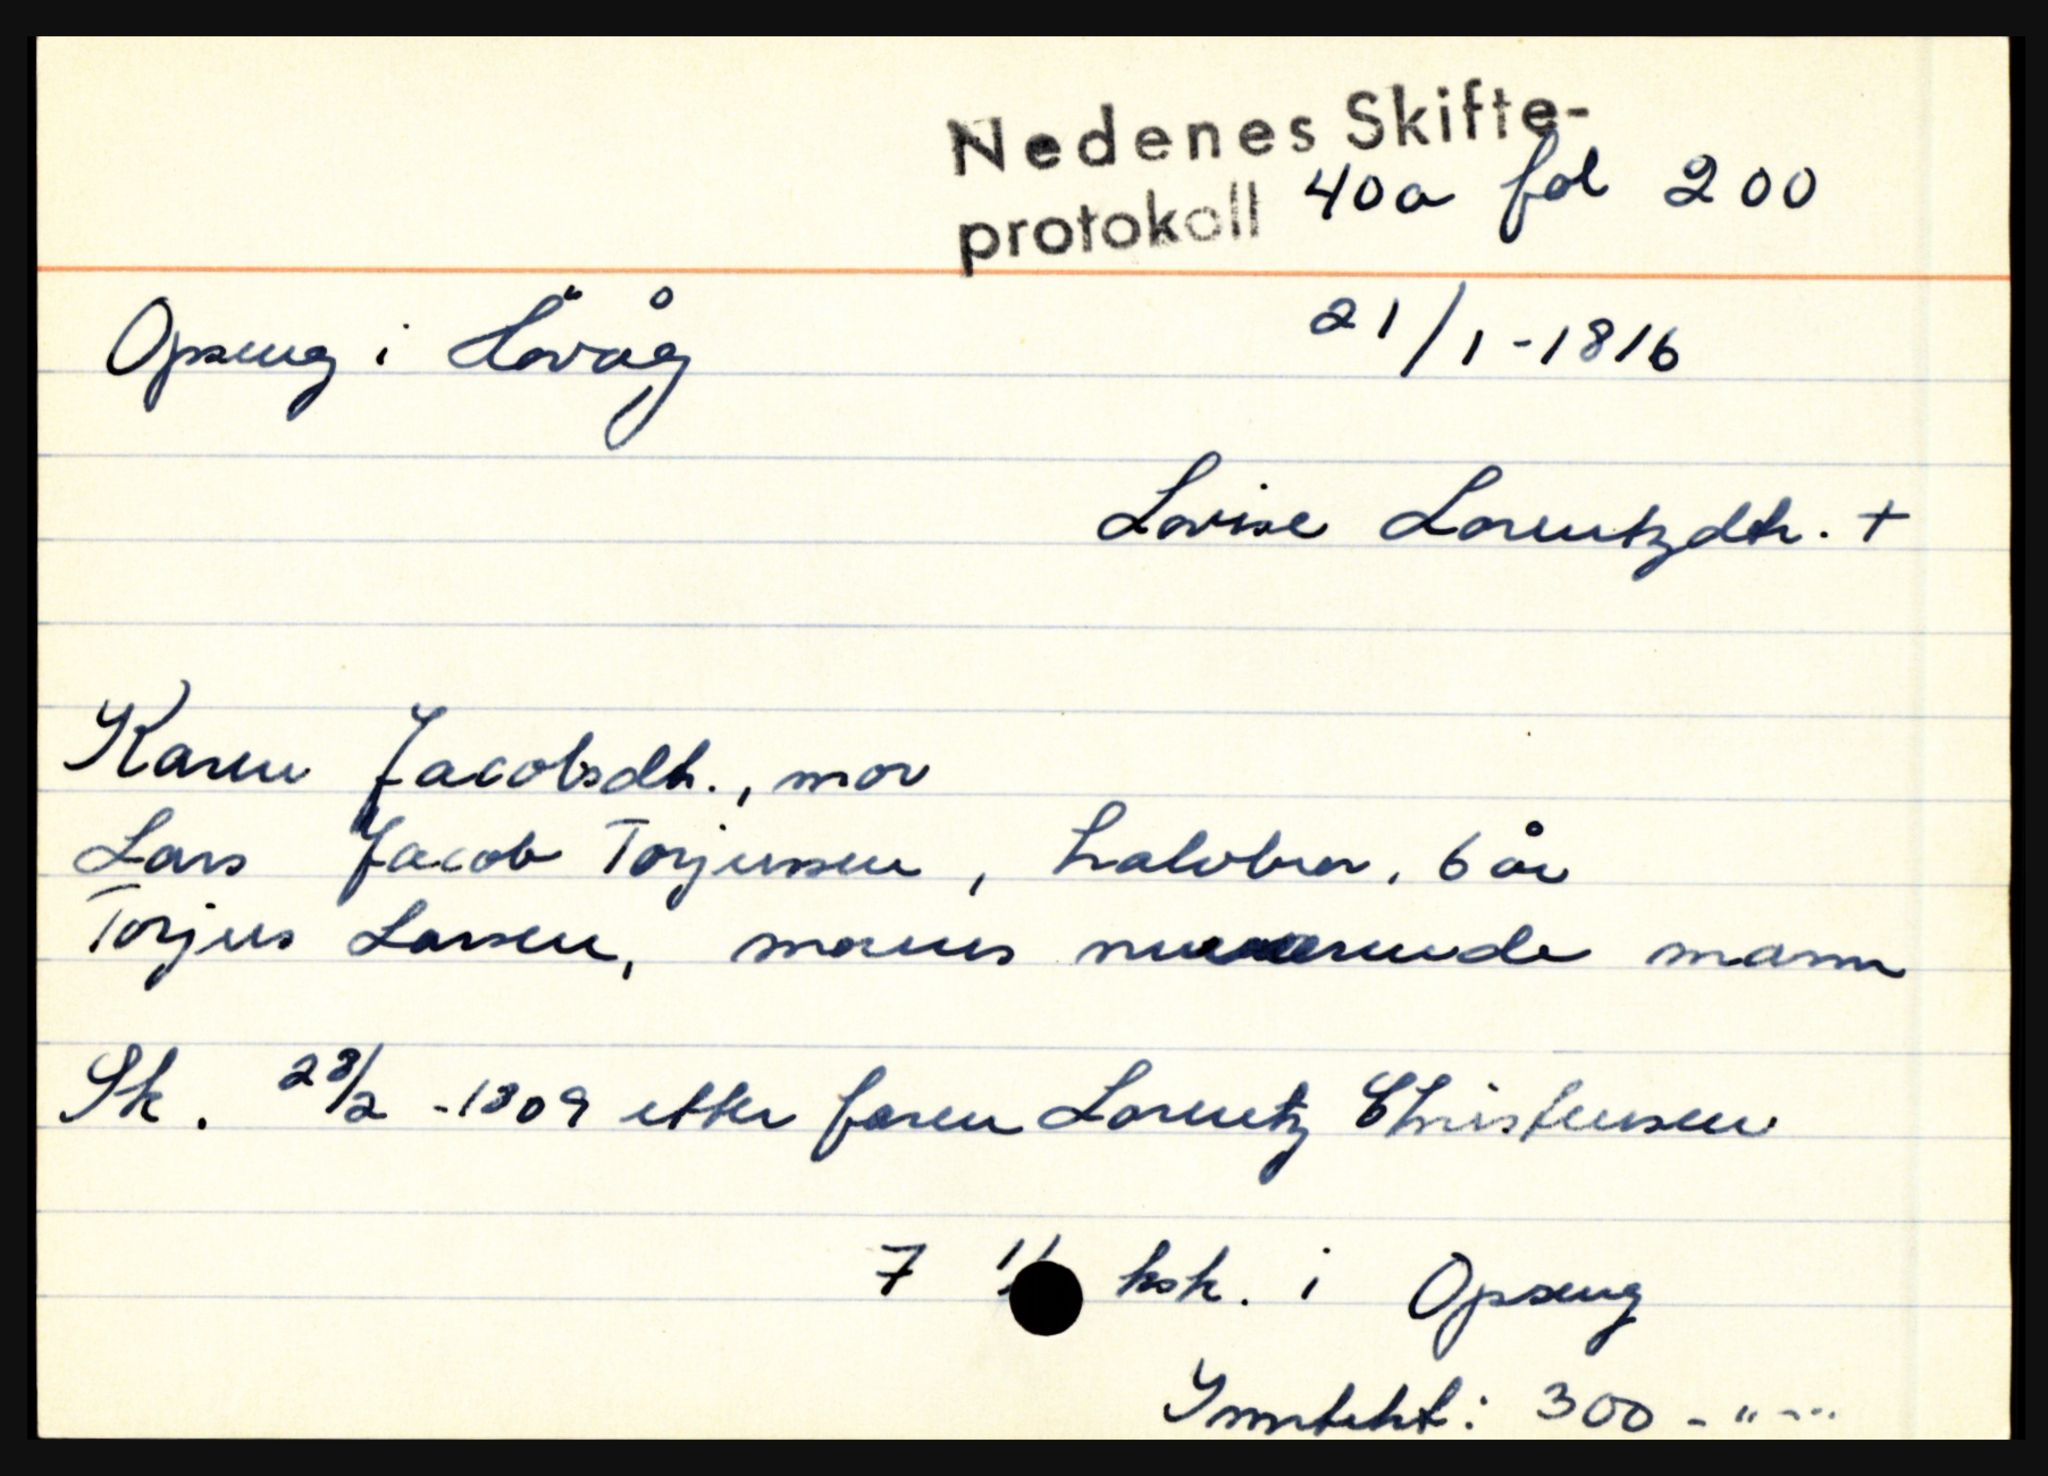 Nedenes Skifte-
protokoll 40a fol 200
Opseng i Høvåg 21/1-1816
Lovise Lorentzdtr. +
Karen Jacobsdtr., mor
Lars Jacob Torjussen, halvbror, 6 år
Torjus Larsen, morens nuværende mann
Sk. 28/2 -1809 etter faren Lorentz Christensen
7 ksk. i Opseng
Inntekt: 300 - " - "